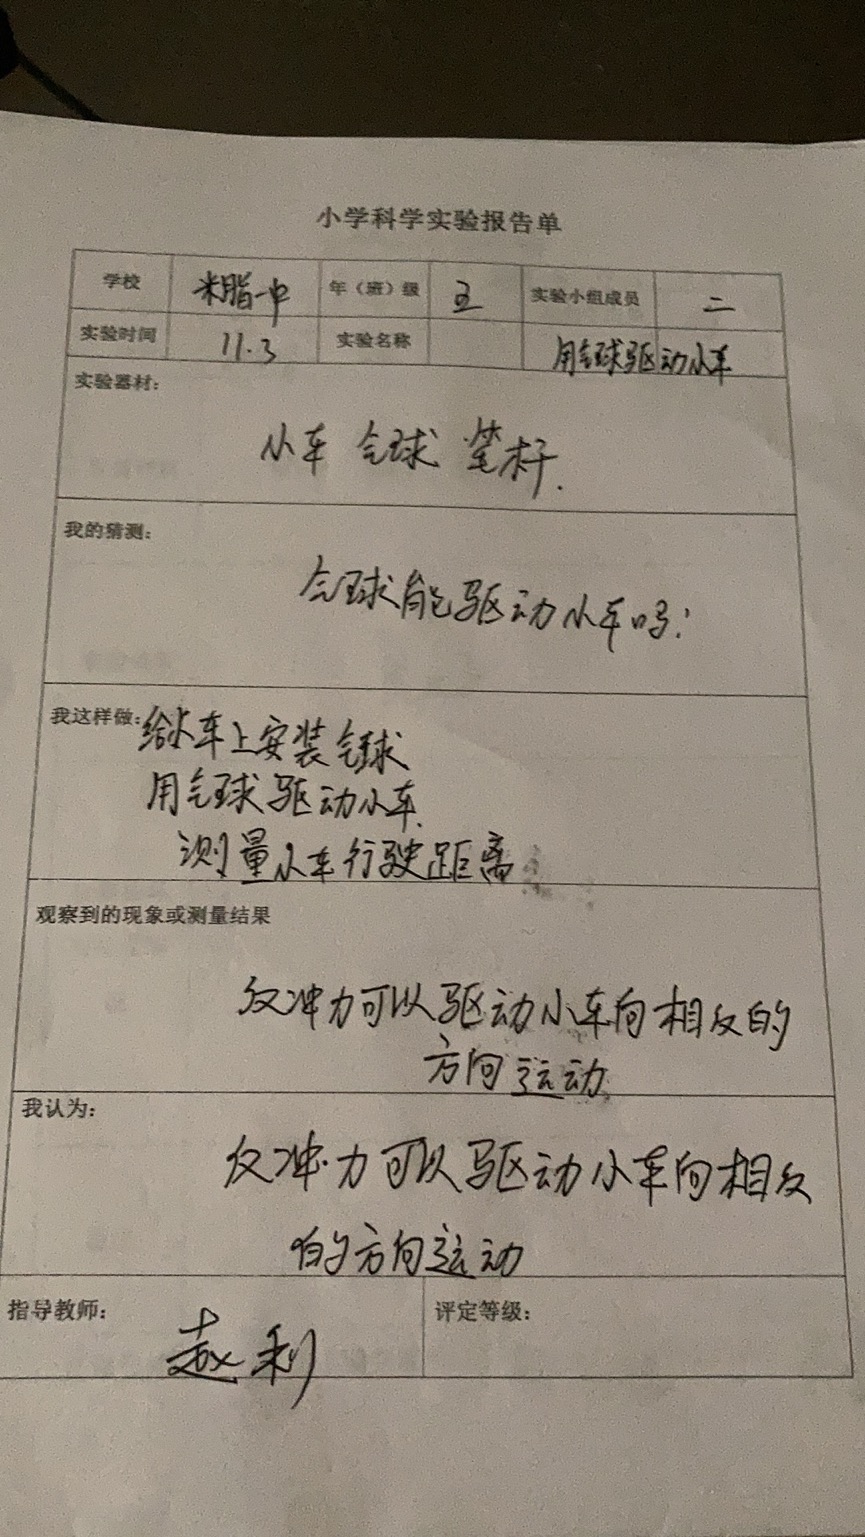 小学科学实验报告单
学校 米脂一中 年（班）级 五 实验小组成员 二
实验时间 11.3 实验名称 用气球驱动小车
实验器材：
小车 气球 笔杆.
我的猜测：
气球能驱动小车吗？
我这样做：给小车上安装气球
用气球驱动小车.
测量小车行驶距离
观察到的现象或测量结果
反冲力可以驱动小车向相反的
方向运动
我认为：
反冲力可以驱动小车向相反
的方向运动
指导教师： 赵利 评定等级：